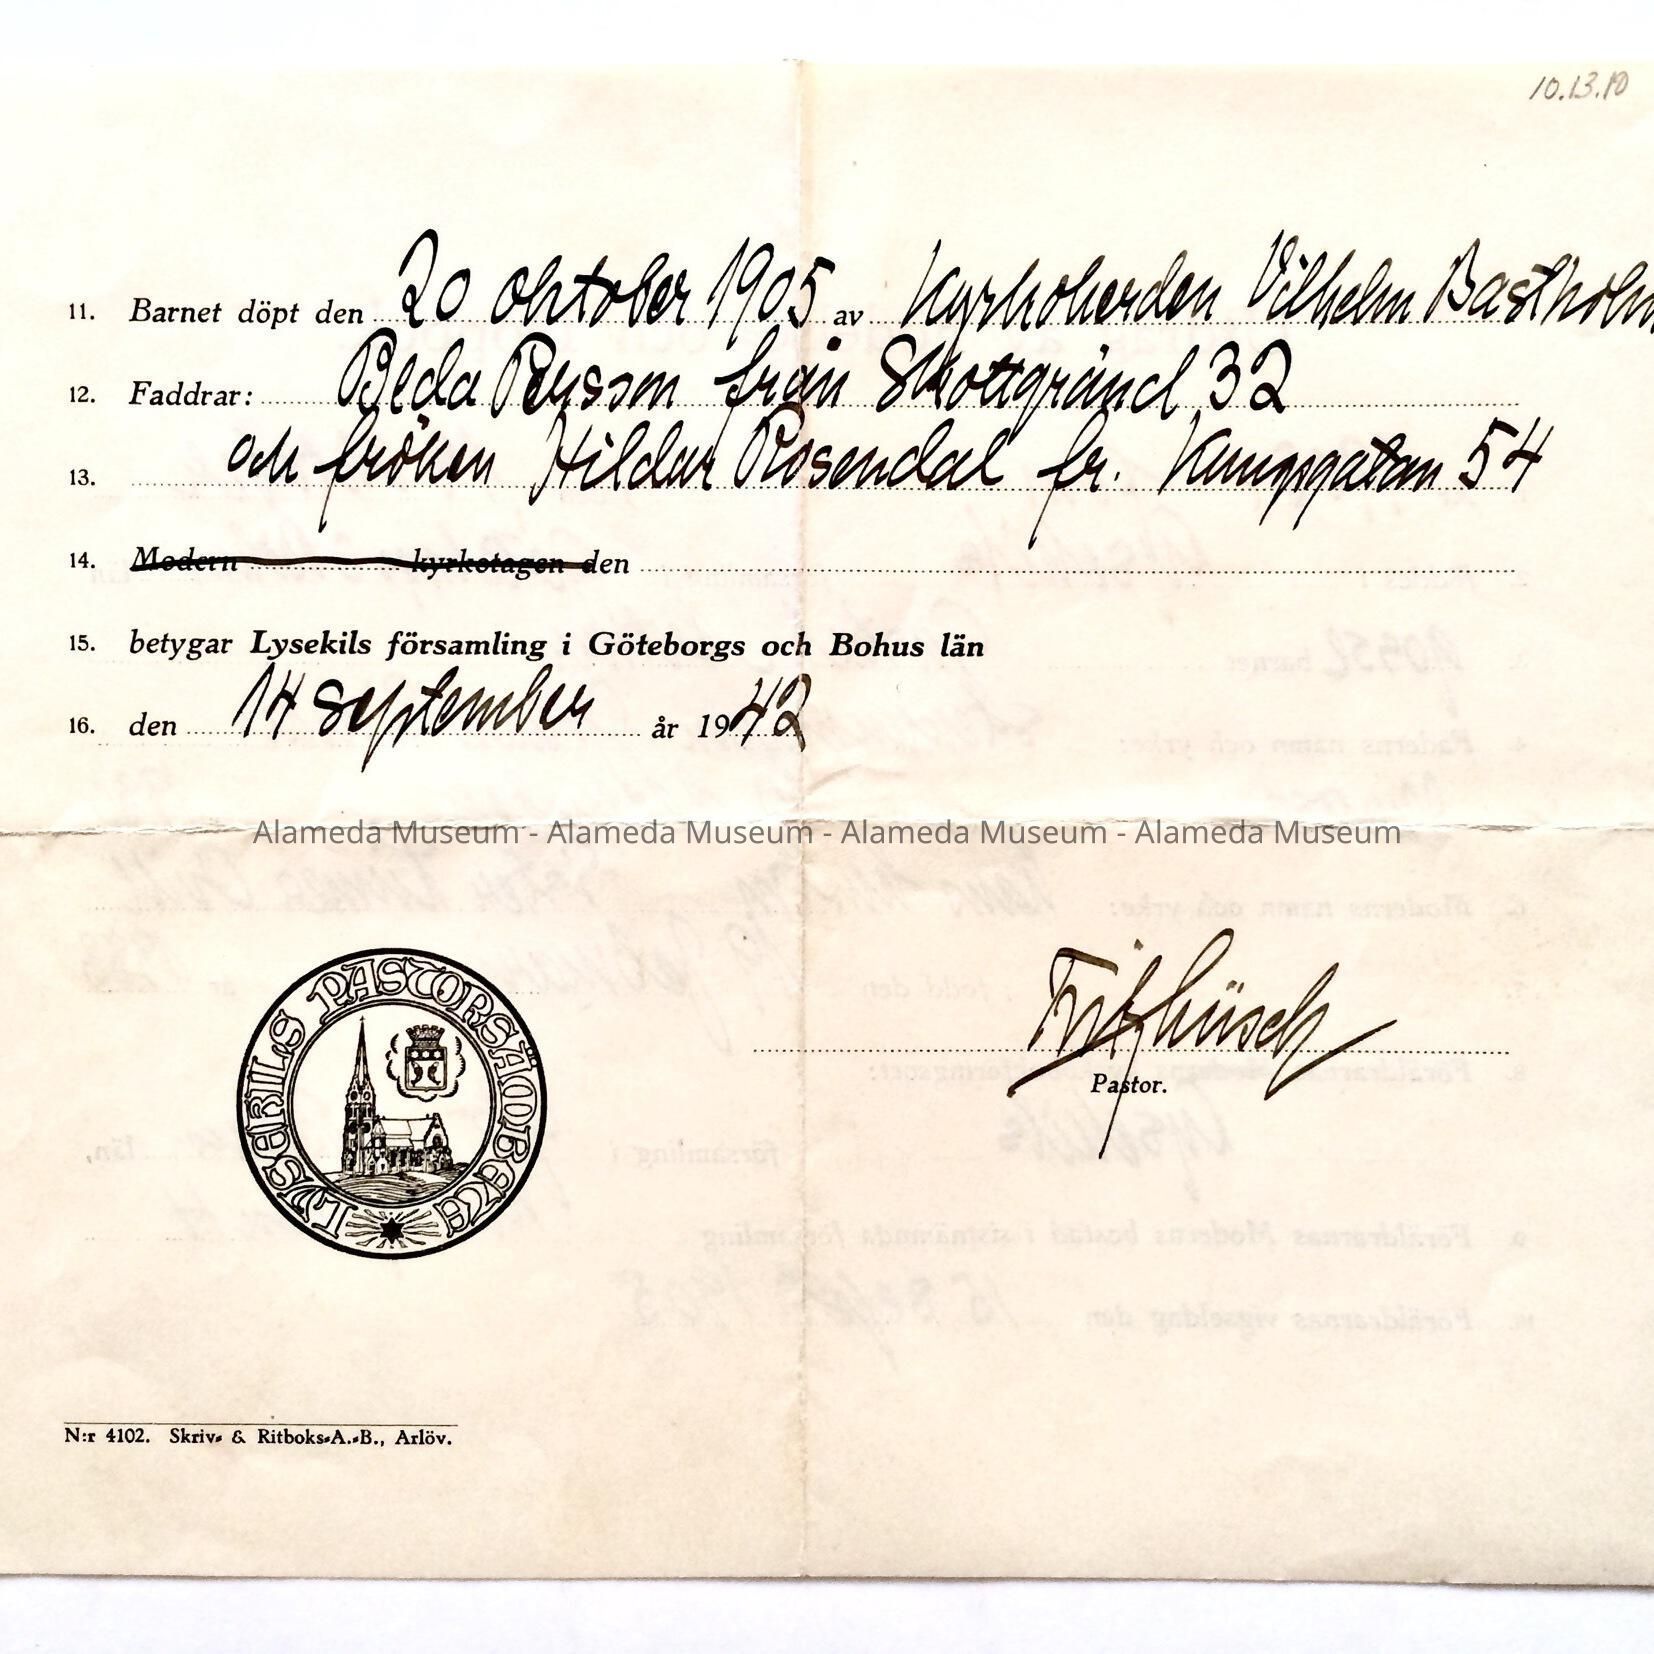 10.13.10
11. Barnet döpt den 20 oktober 1905 av Kyrkoherden Vilhelm Bastholm
12. Faddrar: Beda Persson från Skottgränd 32
13. och fröken Hildur Rosendal fr. Kungsgatan 54
14. Modern kyrkotagen den
15. betygar Lysekils församling i Göteborgs och Bohus län
16. den 14 September år 1942
Alameda Museum - Alameda Museum - Alameda Museum - Alameda Museum
LYSEKILS PASTORSÄMBETE
Pastor.
N:r 4102. Skriv- & Ritboks-A.-B., Arlöv.